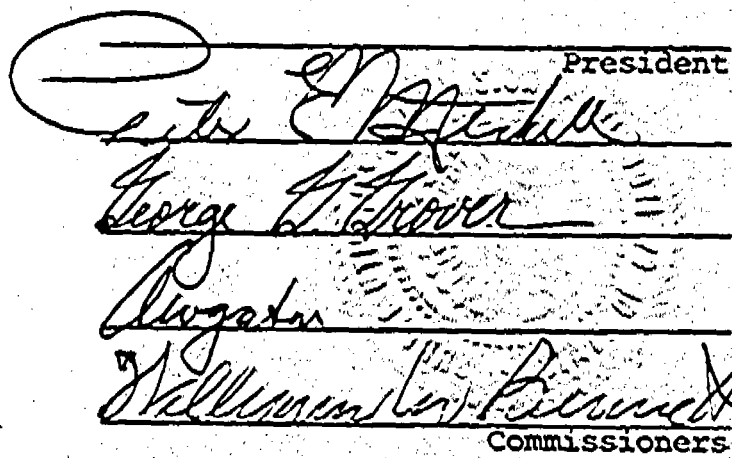 President
Peter E Mitchell
George G. Grover
William Bennett
Commissioners